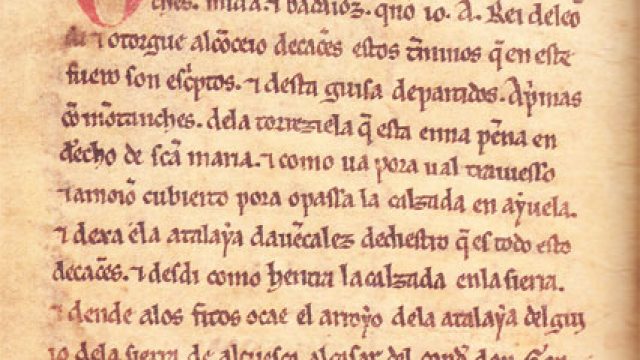 ches. mida. ⁊ badaioz. q̄no io. A. Rei deleō
di ⁊ otorgue alcōceio decac̄es estos t̄minos q̄ en este
fuero son esc̄ptos. ⁊ desta guisa departidos. Ap̄mas
cō mōtanches. dela torreziela q̄ esta enna pēna en
d̄echo de sc̄a maria. ⁊ como ua pora ual trauiesso
⁊ amoiō cubierto pora o passa la calzada en ayuela.
⁊ dexa ela atalaya dauēcalez dechestro q̄ es todo esto
decac̄es. ⁊ desdi como hentra la calzada enla sierra.
⁊ dende alos fitos ocae el arroyo dela atalaya del gui
io dela sierra de alcuesca